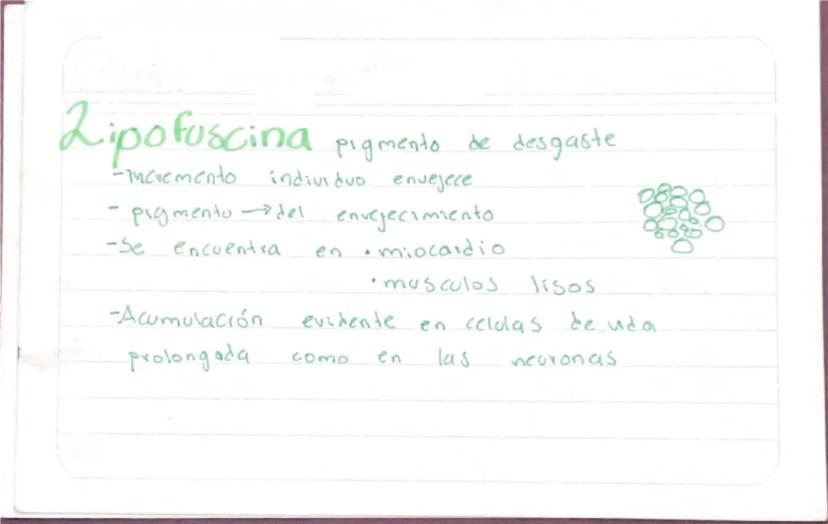 Lipofuscina pigmento de desgaste
-Incremento individuo envejece
- pigmento → del envejecimiento
-Se encuentra en • miocardio
• musculos lisos
-Acumulación evidente en celulas de vida
prolongada como en las neuronas